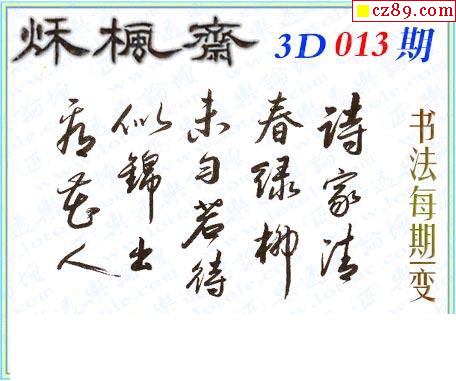 cz89.com
秌楓齋 3D 013 期
詩家清
春绿柳
未匀若待
似錦出
看花人
书法每期一变